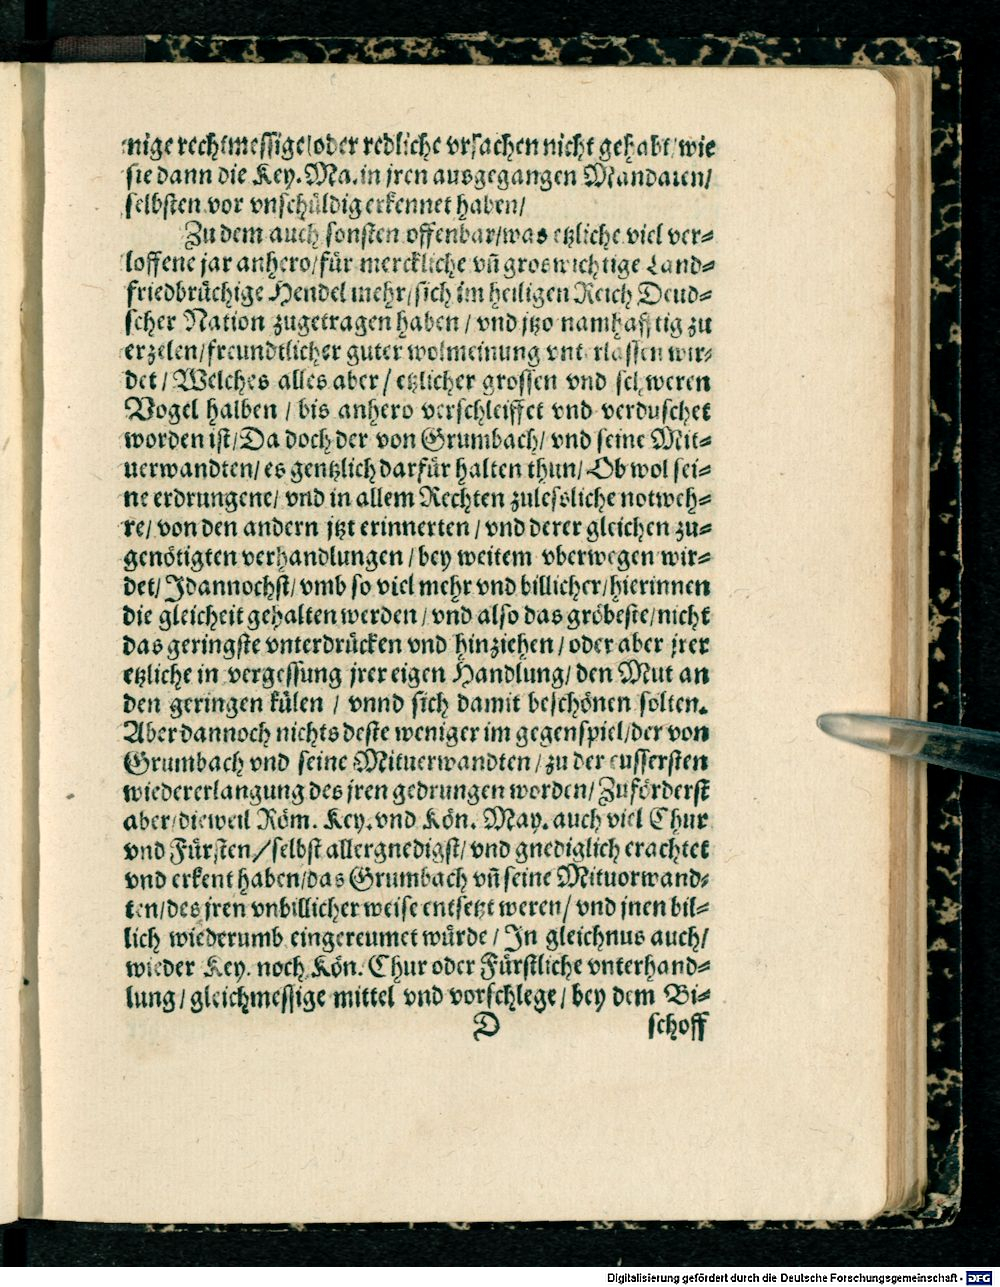 nige rechtmessige/oder redliche vrsachen nicht gehabt/wie
sie dann die Key. Ma. in jren ausgegangen Mandaten/
selbsten vor vnschüldig erkennet haben/
Zu dem auch sonsten offenbar/was etzliche viel ver-
loffene jar anhero/für merckliche vñ groswichtige Land-
friedbrüchige Hendel mehr/sich im heiligen Reich Deud-
scher Nation zugetragen haben / vnd jtzo namhafftig zu
erzelen/freundtlicher guter wolmeinung vnterlassen wir-
det / Welches alles aber / etzlicher grossen vnd schweren
Vogel halben / bis anhero verschleiffet vnd verduschet
worden ist/Da doch der von Grumbach/ vnd seine Mit-
uerwandten/ es gentzlich darfür halten thun/ Ob wol sei-
ne erdrungene/ vnd in allem Rechten zulessliche notweh-
re/ von den andern jtzt erinnerten / vnd derer gleichen zu-
genötigten verhandlungen / bey weitem vberwegen wir-
det/ Jdannochst/ vmb so viel mehr vnd billicher/hierinnen
die gleicheit gehalten werden / vnd also das gröbeste/nicht
das geringste vnterdrücken vnd hinziehen / oder aber jrer
etzliche in vergessung jrer eigen Handlung/ den Mut an
den geringen külen / vnnd sich damit beschönen solten.
Aber dannoch nichts deste weniger im gegenspiel/der von
Grumbach vnd seine Mituerwandten/ zu der eussersten
wiedererlangung des jren gedrungen worden/ Zuförderst
aber/dieweil Röm. Key. vnd Kön. May. auch viel Chur
vnd Fürsten/selbst allergnedigst/ vnd gnediglich erachtet
vnd erkent haben/das Grumbach vñ seine Mituorwand-
ten/des jren vnbillicher weise entsetzt weren/ vnd jnen bil-
lich wiederumb eingereumet würde / Jn gleichnus auch/
wieder Key. noch Kön. Chur oder Fürstliche vnterhand-
lung/ gleichmessige mittel vnd vorschlege / bey dem Bi-
D schoff
Digitalisierung gefördert durch die Deutsche Forschungsgemeinschaft - DFG